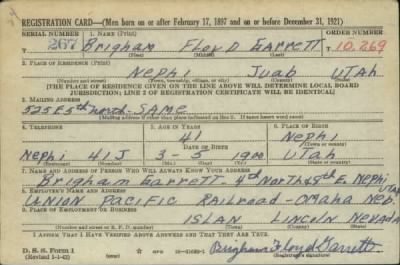 REGISTRATION CARD—(Men born on or after February 17, 1897 and on or before December 31, 1921)
SERIAL NUMBER 1. NAME (Print) ORDER NUMBER
T 267 Brigham Floyd Garrett T 10,269
(First) (Middle) (Last)
2. PLACE OF RESIDENCE (Print)
Nephi Juab Utah
(Number and street) (Town, township, village, or city) (County) (State)
[THE PLACE OF RESIDENCE GIVEN ON THE LINE ABOVE WILL DETERMINE LOCAL BOARD
JURISDICTION; LINE 2 OF REGISTRATION CERTIFICATE WILL BE IDENTICAL]
3. MAILING ADDRESS
525 E 5th North SAME
[Mailing address if other than place indicated on line 2. If same insert word same]
4. TELEPHONE 5. AGE IN YEARS 6. PLACE OF BIRTH
41 Nephi
DATE OF BIRTH (Town or county)
Nephi 41J 3-5 1900 Utah
(Exchange) (Number) (Mo.) (Day) (Yr.) (State or country)
7. NAME AND ADDRESS OF PERSON WHO WILL ALWAYS KNOW YOUR ADDRESS
Brigham Garrett 4th North & E. Nephi Utah
8. EMPLOYER'S NAME AND ADDRESS
Union Pacific Railroad-Omaha Neb.
9. PLACE OF EMPLOYMENT OR BUSINESS
ISLAN Lincoln Nevada
(Number and street or R. F. D. number) (Town) (County) (State)
I AFFIRM THAT I HAVE VERIFIED ABOVE ANSWERS AND THAT THEY ARE TRUE.
D. S. S. Form 1
(Revised 1-1-42) (over) Brigham Floyd Garrett